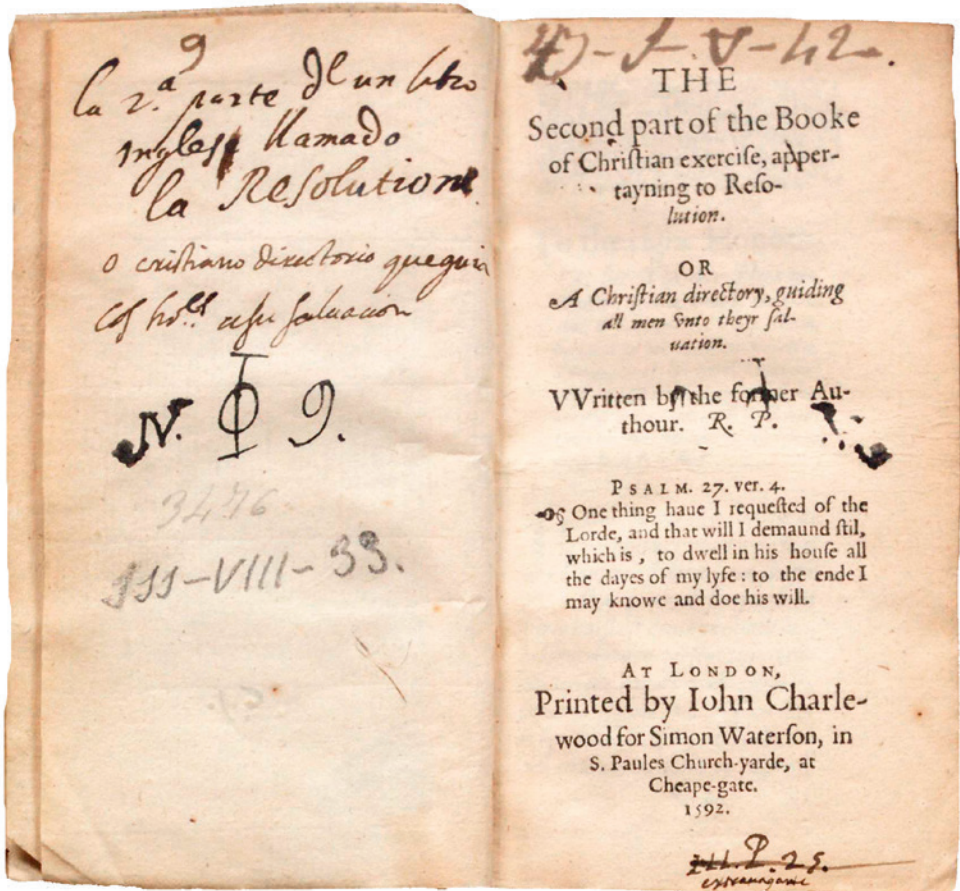 9
la 2.ª parte de un libro
Ingles llamado
la Resolutione
o cristiano directorio que guia
a su saluacion
N. Φ 9.
3476
-VIII-33.
THE
Second part of the Booke
of Chriſtian exerciſe, apper-
tayning to Reſo-
lution.
OR
A Chriſtian directory, guiding
all men vnto theyr ſal-
uation.
VVritten by the former Au-
thour. R. P.
PSALM. 27. ver. 4.
One thing haue I requeſted of the
Lorde, and that will I demaund ſtil,
which is, to dwell in his houſe all
the dayes of my lyfe: to the ende I
may knowe and doe his will.
AT LONDON,
Printed by Iohn Charle-
wood for Simon Waterſon, in
S. Paules Church-yarde, at
Cheape-gate.
1592.